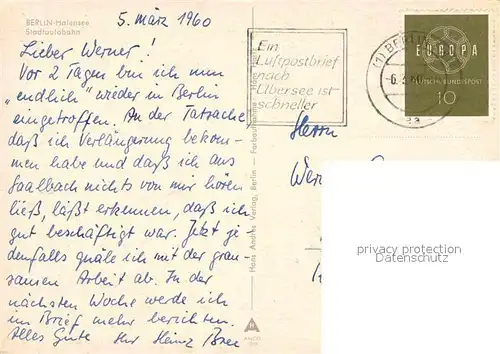 BERLIN-Halensee
Stadtautobahn
5. März 1960
Lieber Werner!
Vor 2 Tagen bin ich nun
"endlich" wieder in Berlin
eingetroffen. An der Tatsache
daß ich Verlängerung bekom-
men habe und daß ich aus
Saalbach nichts von mir hören
ließ, läßt erkennen, daß ich
gut beschäftigt war. Jetzt je-
denfalls quäle ich mich der grau-
samen Arbeit ab. In der
nächsten Woche werde ich
im Brief mehr berichten.
Alles Gute Ihr Heinz
Hans Andres Verlag, Berlin
Ein
Luftpostbrief
nach
Übersee ist
schneller
(1) BERLIN
EUROPA
DEUTSCHE BUNDESPOST
10
Herrn
privacy protection
Datenschutz